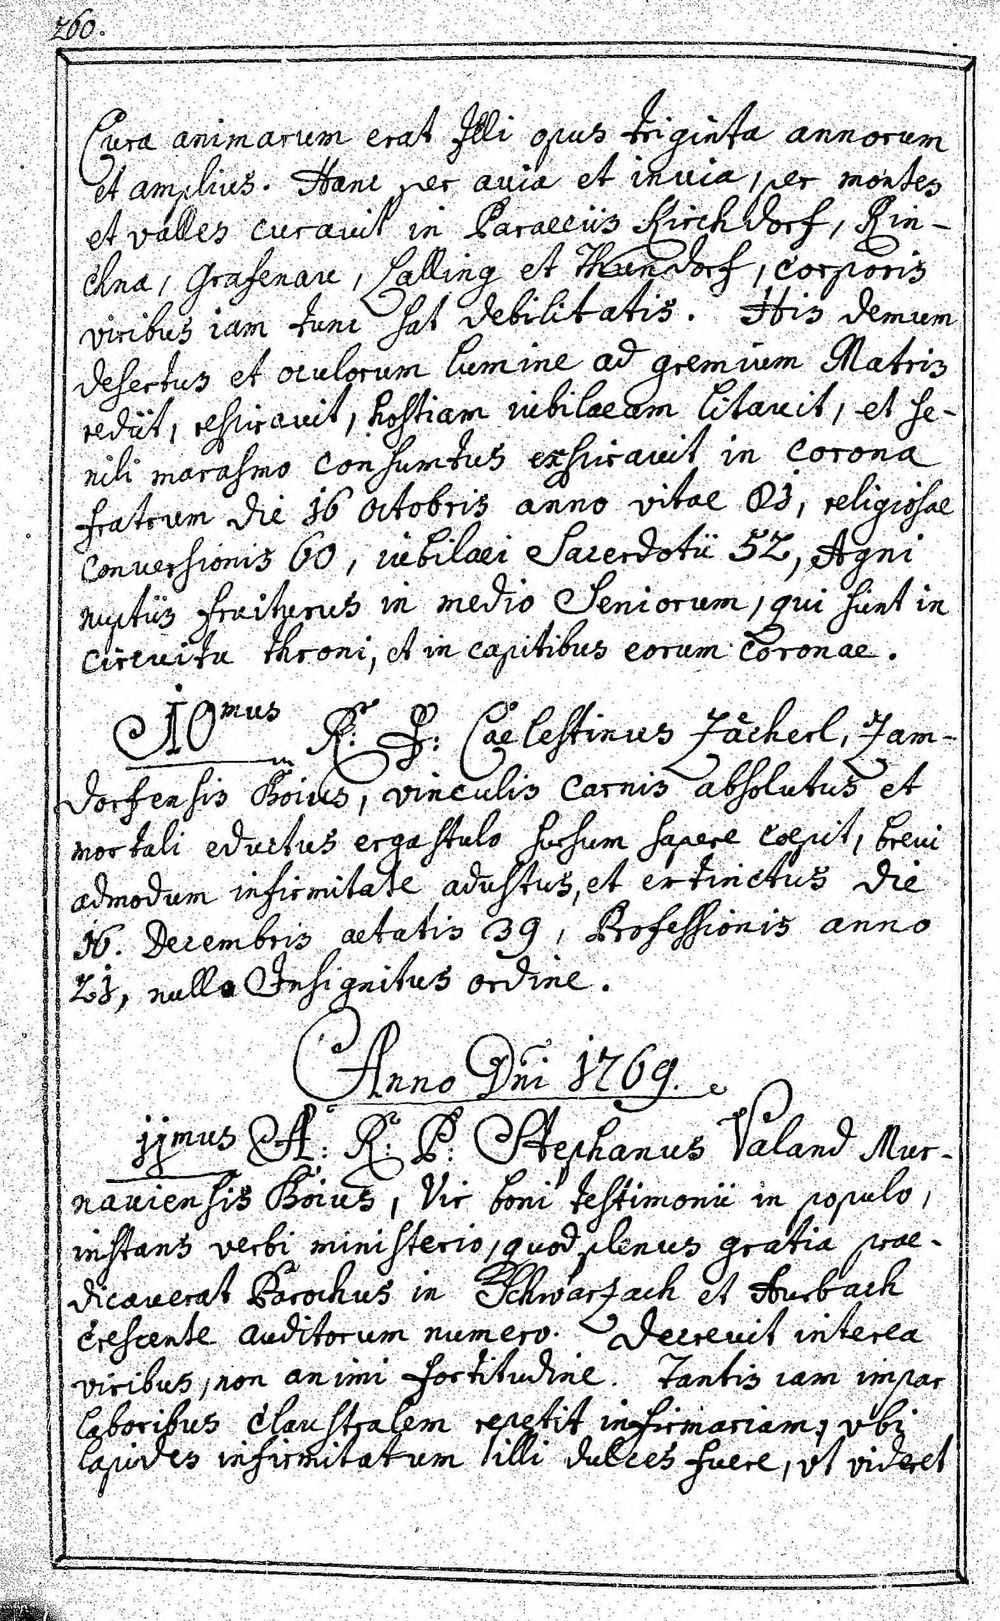 260.
Cura animarum erat Illi opus triginta annorum
et amplius. Hanc per auia et inuia, per montes
et valles curauit in Paraeciis Kirchdorf, Rin-
chna, Grafenau, Lalling et Thundorf, corporis
viribus iam tunc sat debilitatis. His demum
desertus et oculorum lumine ad gremium Matris
rediit, respirauit, hostiam iubilaeam litauit, et se-
nili marasmo consumtus expirauit in corona
fratrum die 16 octobris anno vitae 81, religiosae
conuersionis 60, iubilaei Sacerdotii 52, Agni
nuptiis fruiturus in medio Seniorum, qui sunt in
circuitu throni, et in capitibus eorum Coronae.
10mus R: P: Caelestinus Zächerl, Zam-
dorfensis Boius, vinculis carnis absolutus et
mortali eductus ergastulo sursum sapere coepit, breui
admodum infirmitate adustus, et extinctus die
16. Decembris aetatis 39, Professionis anno
21, nullo Insignitus ordine.
Anno Dni 1769.
11mus A: R: P: Stephanus Valand Mur-
nauiensis Boius, Vir boni testimonii in populo,
instans verbi ministerio, quod plenus gratia prae-
dicauerat Parochus in Schwarzach et Aurbach
crescente auditorum numero. Decreuit interea
viribus, non animi fortitudine. Tantis iam impar
laboribus claustralem repetit infirmariam, vbi
lapides infirmitatum illi dulces fuere, vt videret